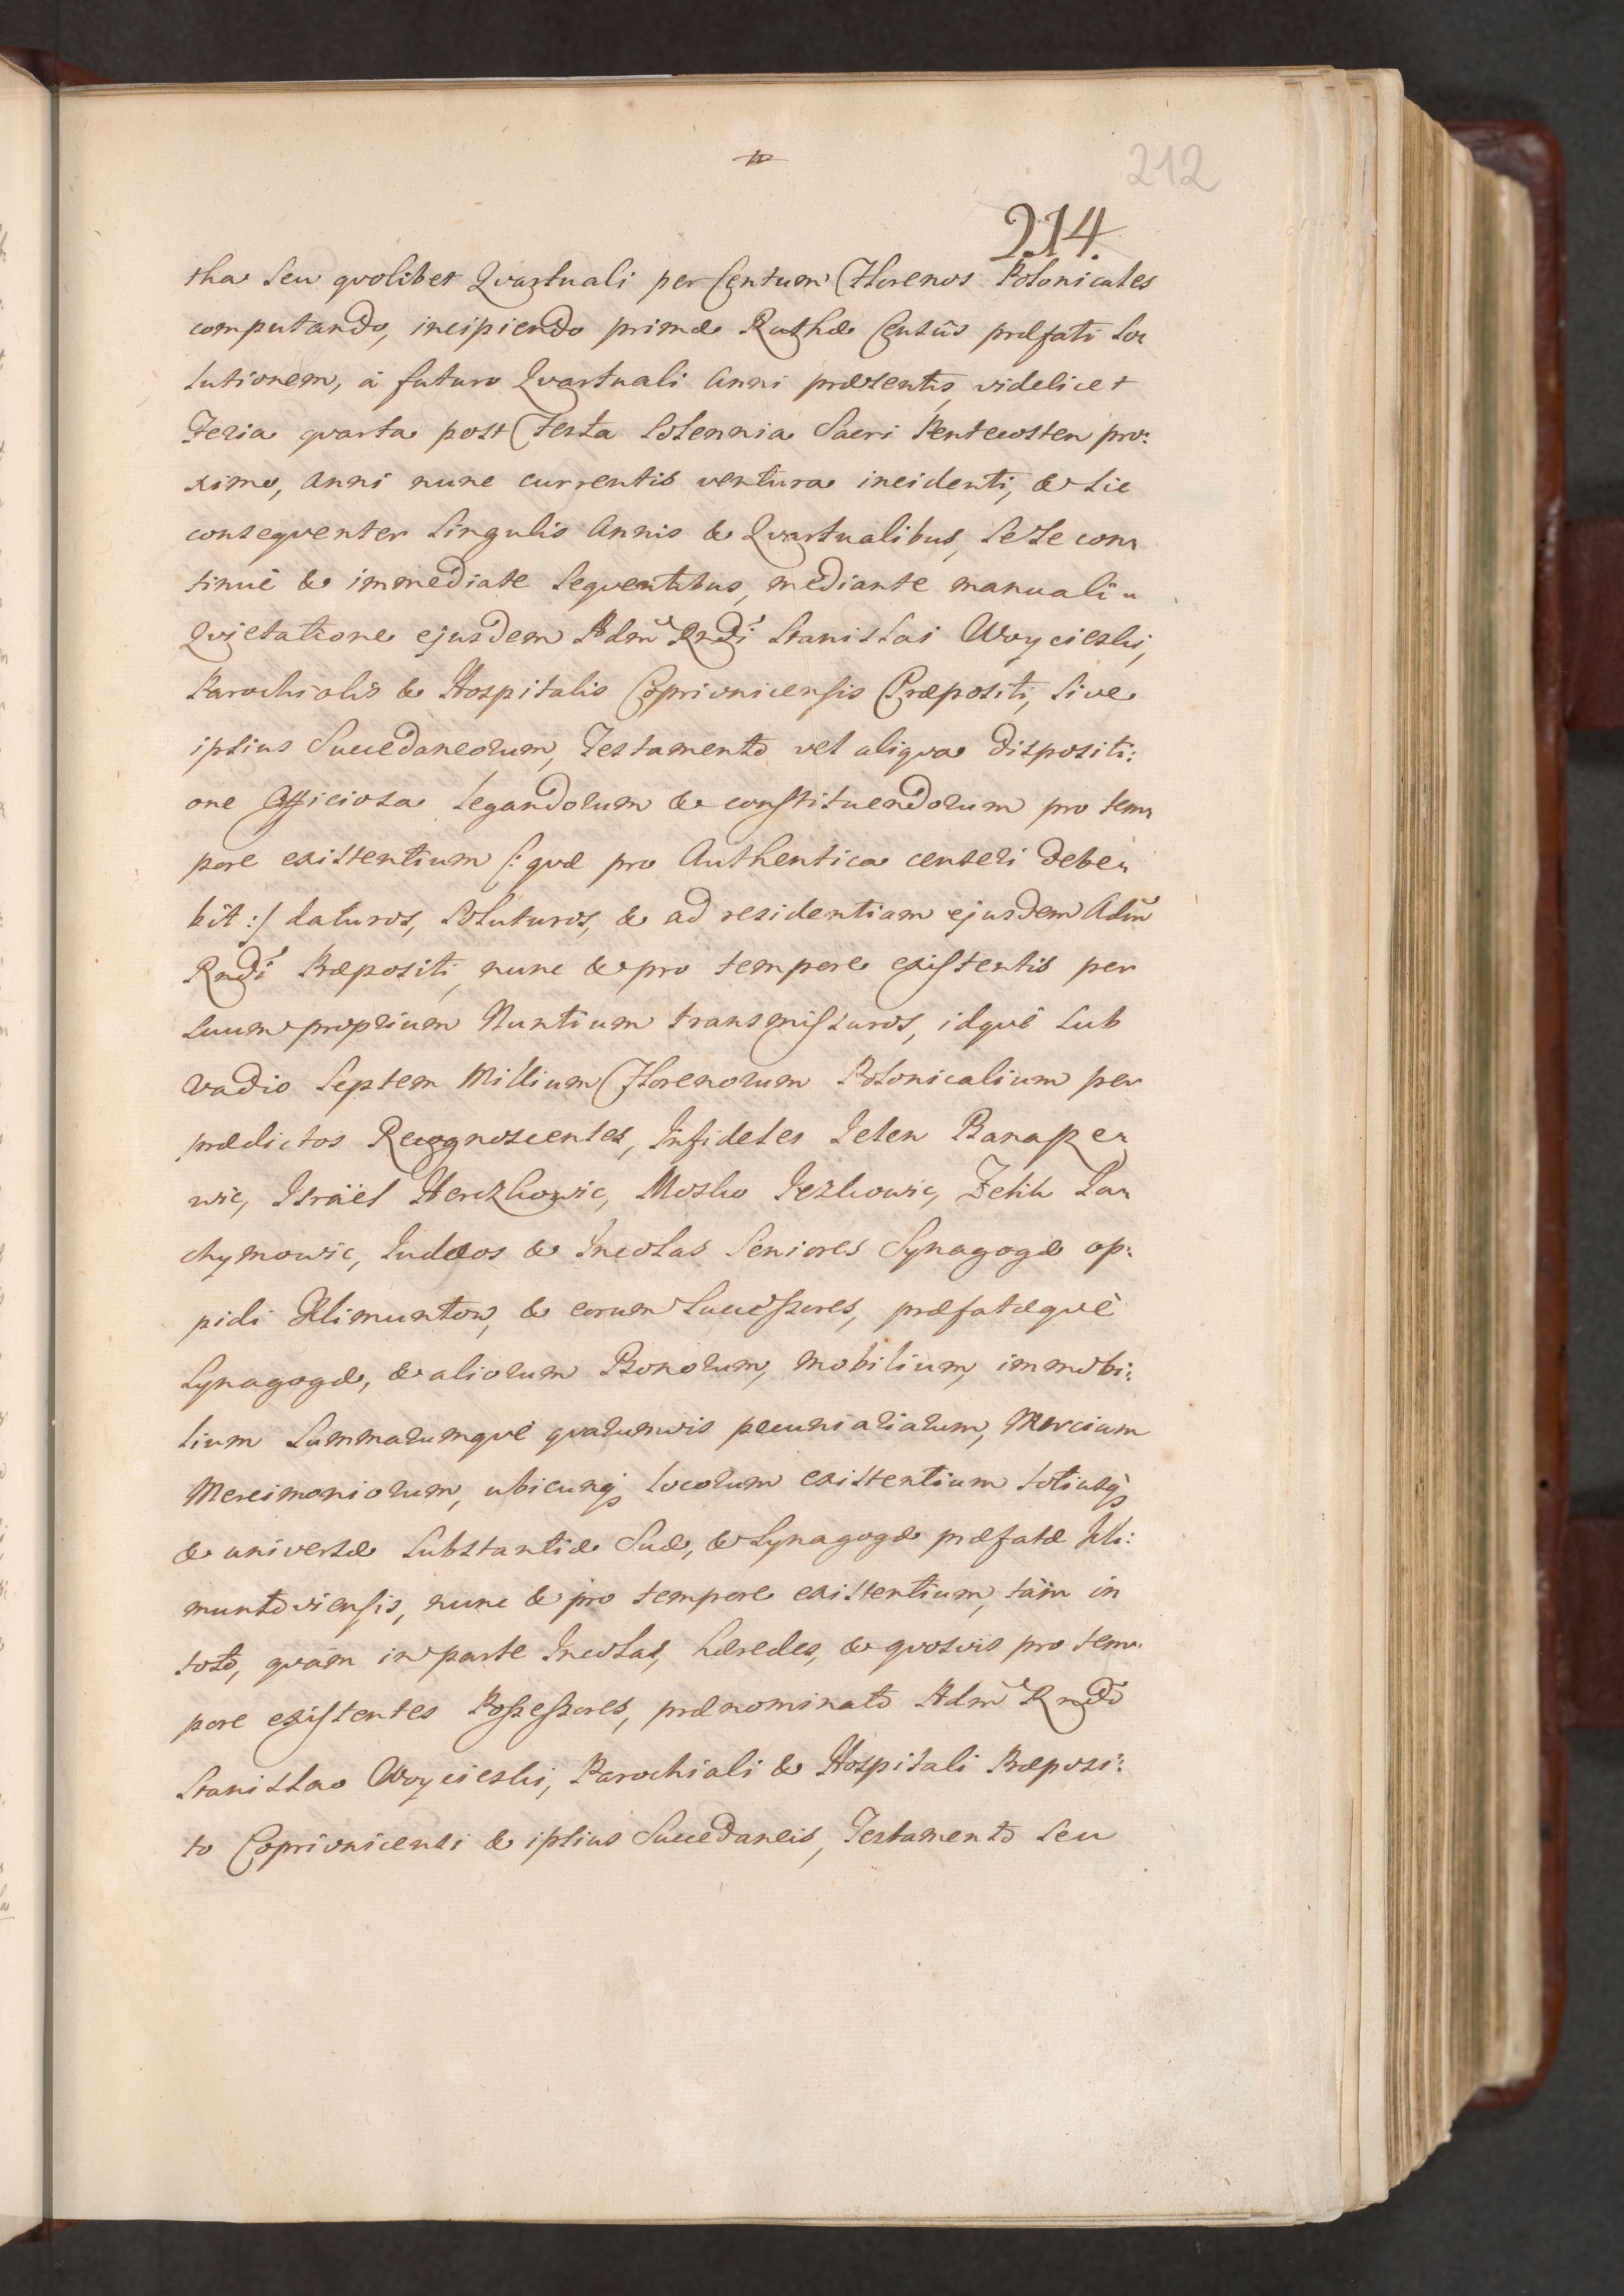 212
214.
tha seu qvolibet Qvartuali per Centum Florenos Polonicales
computando, incipiendo primæ Rathæ Censûs præfati so=
lutionem, à futuro Qvartuali Anni præsentis, videlicet
Feria qvarta post Festa Solennia Sacri Pentecosten pro:
ximo, Anni nunc currentis ventura incidenti, & sic
conseqventer singulis Annis & Qvartualibus, sese con=
tinuè & immediate seqventibus, mediante manuali
Qvietatione ejusdem Adm̃ Rndi Stanislai Woycieski,
Parochialis & Hospitalis Coprivnicensis Præpositi, sive
ipsius Succedaneorum, Testamento vel aliqva dispositi:
one Officiosa legandorum & constituendorum pro tem=
pore existentium /: qvæ pro Authentica censeri debe=
bit :/ daturos, soluturos, & ad residentiam ejusdem Adm̃
Rndi Præpositi, nunc & pro tempore existentis per
suum proprium Nuntium transmissuros, idqvè sub
vadio Septem Millium Florenorum Polonicalium per
prædictos Recognoscentes, Infideles Jelen Banasze=
wic, Israël Herczkowic, Mosko Jezkowic, Zelik Ja=
chymowic, Judæos & Incolas Seniores Synagogæ op:
pidi Klimuntow, & eorum Successores, præfatæqvè
Synagogæ, & aliorum Bonorum, mobilium, immobi:
lium Summarumqvè qvarumvis pecuniariarum, Mercium
Mercimoniorum, ubicunq; locorum existentium totiusq;
& universæ Substantiæ Suæ, & Synagogæ præfatæ Kli:
muntoviensis, nunc & pro tempore existentium, tàm in
toto, qvàm in parte Incolas, hæredes, & qvosvis pro tem=
pore existentes Possessores, prænominato Adm̃ Rndo
Stanislao Woycieski, Parochiali & Hospitali Præposi:
to Coprivnicensi & ipsius Succedaneis, Testamento seu